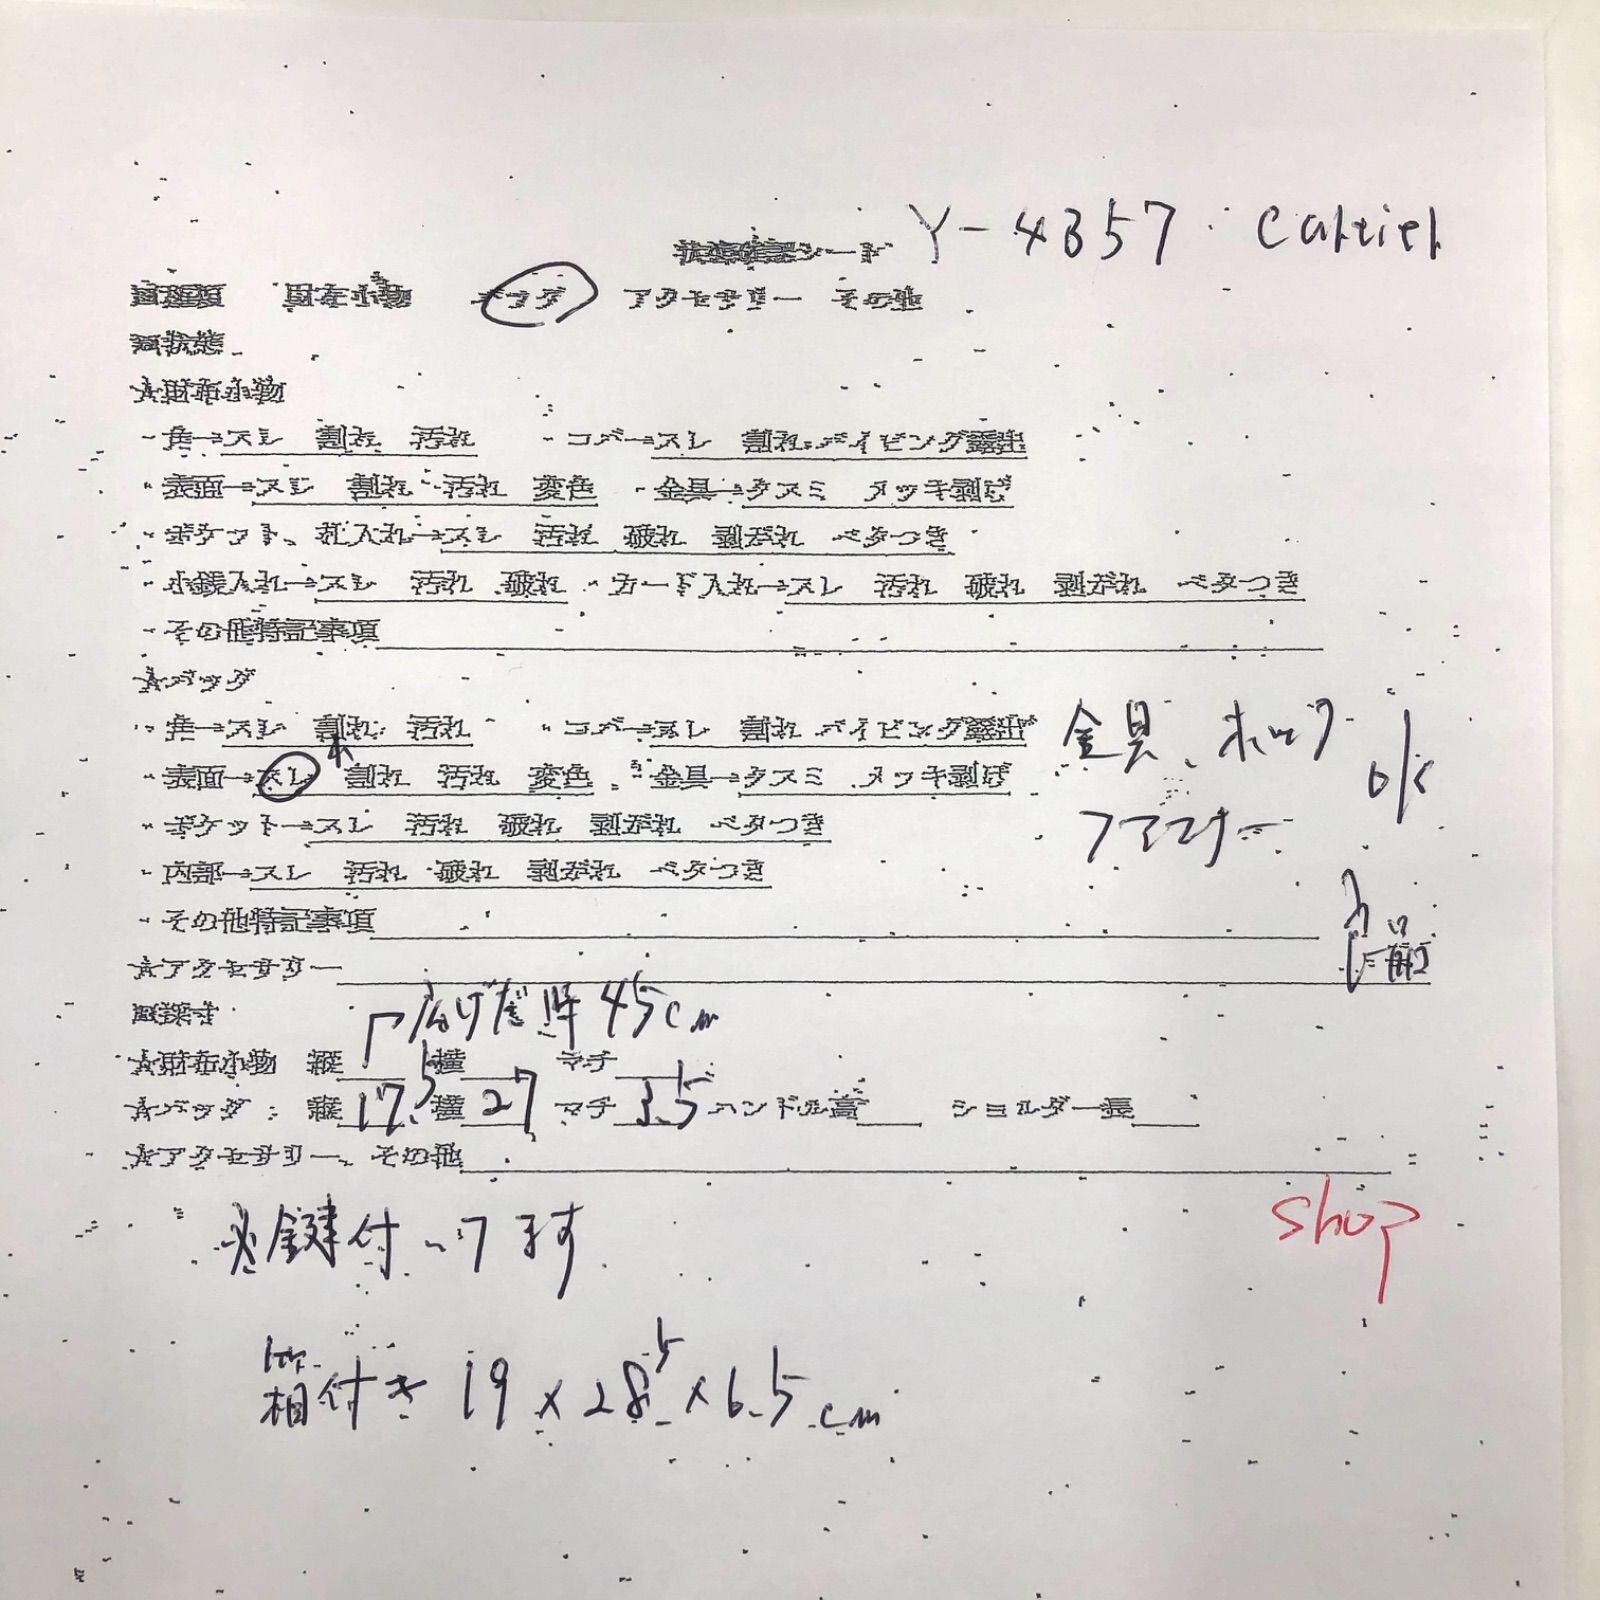 状態確認シート Y-4357 Cartier
■種類 財布小物 バッグ アクセサリー その他
■状態
★財布小物
・角→スレ 割れ 汚れ ・コバ→スレ 割れ パイピング露出
・表面→スレ 割れ 汚れ 変色 ・金具→クスミ メッキ剥げ
・ポケット、札入れ→スレ 汚れ 破れ 剥がれ ベタつき
・小銭入れ→スレ 汚れ 破れ ・カード入れ→スレ 汚れ 破れ 剥がれ ベタつき
・その他特記事項
★バッグ
・角→スレ 割れ 汚れ ・コバ→スレ 割れ パイピング露出
・表面→スレ 割れ 汚れ 変色 ・金具→クスミ メッキ剥げ
金具、ホック
ファスナー
ok
・ポケット→スレ 汚れ 破れ 剥がれ ベタつき
・内部→スレ 汚れ 破れ 剥がれ ベタつき
・その他特記事項
★アクセサリー
■採寸
広げた時 45cm
★財布小物 縦 横 マチ
★バッグ:縦 17.5 横 27 マチ 3.5 ハンドル高 ショルダー長
★アクセサリー、その他
shop
※鍵付いてます
箱付き 19×28.5×6.5cm